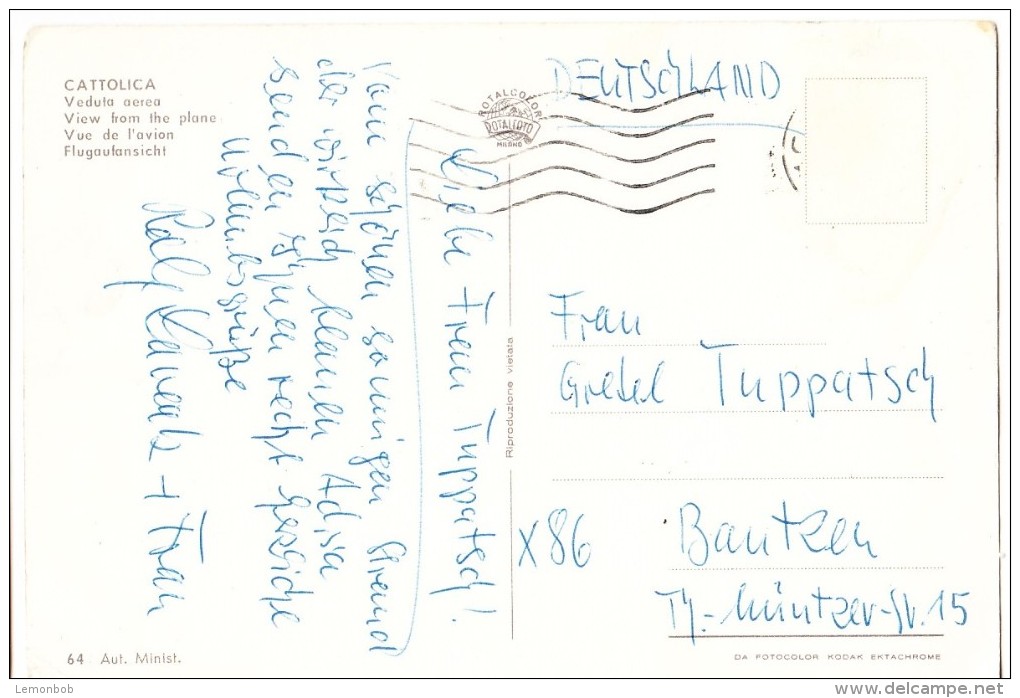 CATTOLICA
Veduta aerea
View from the plane
Vue de l'avion
Flugaufansicht
ROTALCOLOR
ROTALFOTO
MILANO
DEUTSCHLAND
Liebe Frau Tuppatsch!
Vom schönen sonnigen Strand
der wirklich blauen Adria
senden Ihnen recht herzliche
Urlaubsgrüße
+ Frau
Riproduzione vietata
Frau
Gretel Tuppatsch
X86
Bautzen
Th.-Müntzer-Str. 15
64 Aut. Minist.
DA FOTOCOLOR KODAK EKTACHROME
Lemonbob
delcampe.net